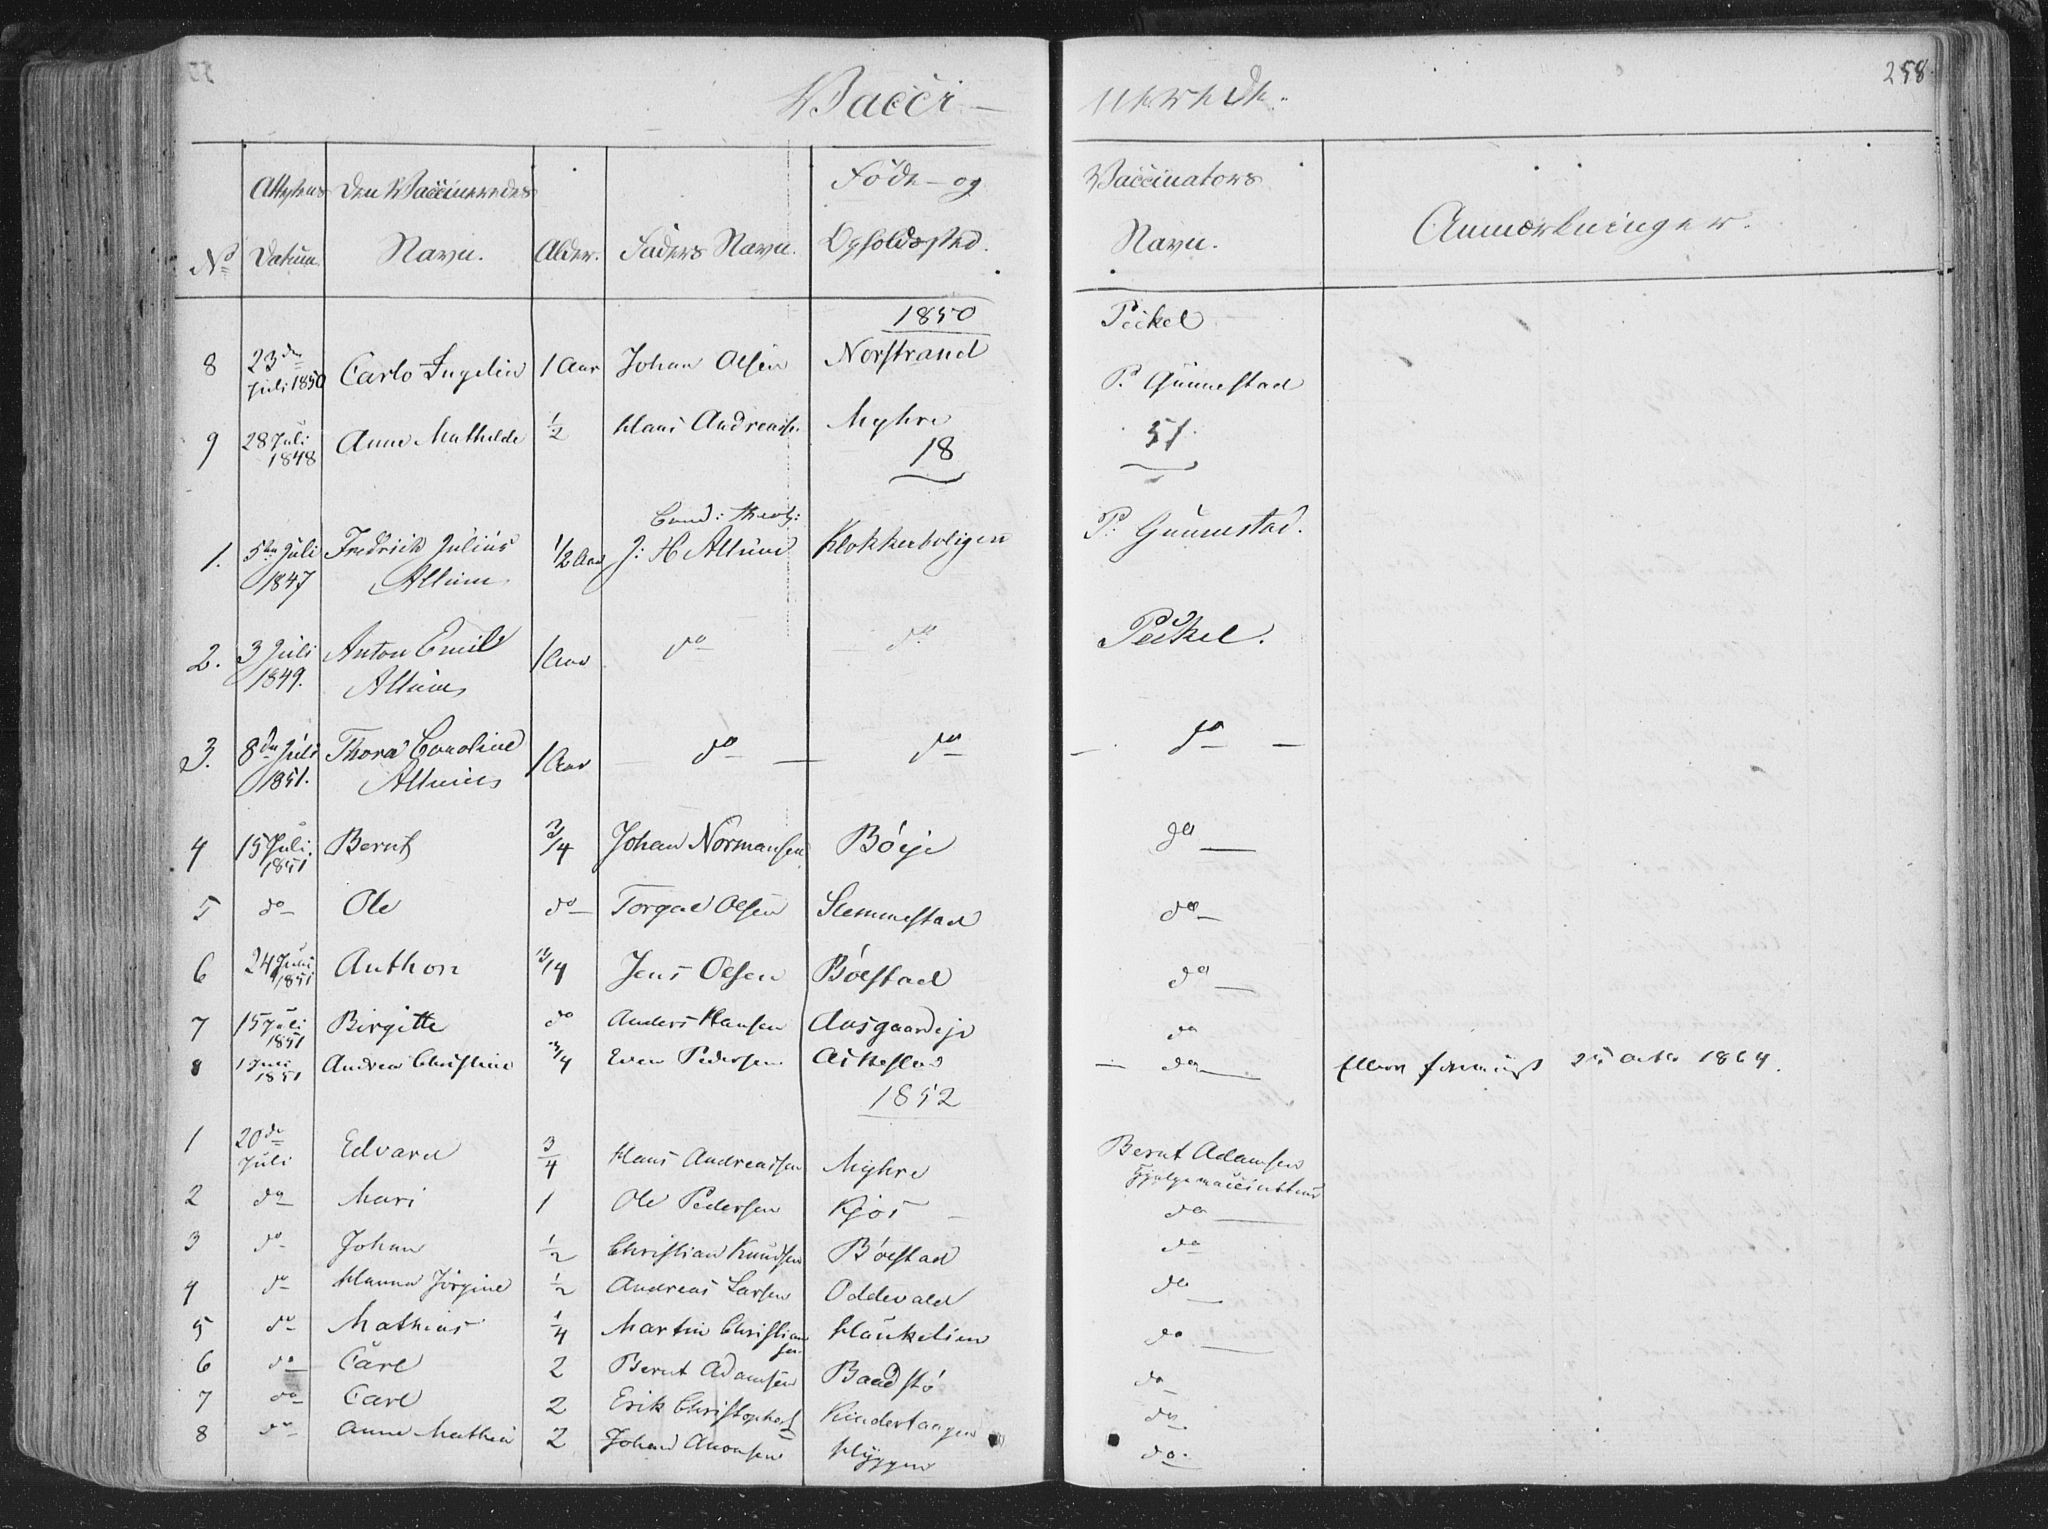 258.
Vacci- nerede.
No Attestens Datum. Den Vaccineredes Navn. Alder. Faders Navn. Føde- og Opholdssted. Vaccinators Navn. Anmærkninger.
1850 Peckel
8 23de Juli 1850 Carlo Ingelin 1 Aar Johan Olsen Norstrand P. Gunnestad
9 28 Juli 1848 Anne Mathilde 1/2 Hans Andreasen Myhre
18 51.
Cand: theol:
1. 5te Juli 1847 Fredrick Julius Allum 1/2 Aar J: H Allum Klokkerboligen P: Gunnestad.
2. 3 Juli 1849. Anton Emil Allum 1 Aar do do Peckel.
3. 8de Juli 1851. Thora Caroline Allum 1 Aar — do — do — do —
4 15 Juli 1851 Bernt 3/4 Johan Normansen Bøeje do —
5 do Ole do — Torger Olsen Slemmestad do —
6 24 Juli 1851 Anthon 3/4 Jens Olsen Bøestad do —
7 15 Juli 1851 Birgitte do Anders Hansen Aasgaardeje do
8 1 Juli 1851 Andrea Christine 3/4 Even Pedersen Askestad — do — 25 octbr 1864.
1852
1 20de Juli Edvard 3/4 Hans Andreassen Myhre Bernt Adamsen
2 do Mari 1 Ole Pedersen Kjøs — do —
3 do Johan 1/2 Christian Knudsen Bøestad do
4 do Hanna Jørgine 1/2 Andreas Larsen Oddevald do —
5 do Mathias 1/4 Martin Christiansen Haukelien do —
6 do Carl 2 Bernt Adamsen Baadstø do
7 do Carl 2 Erik Christophers Kindertangen do
8 do Anne Mathea 2 Johan Amonsen Hyggen do.